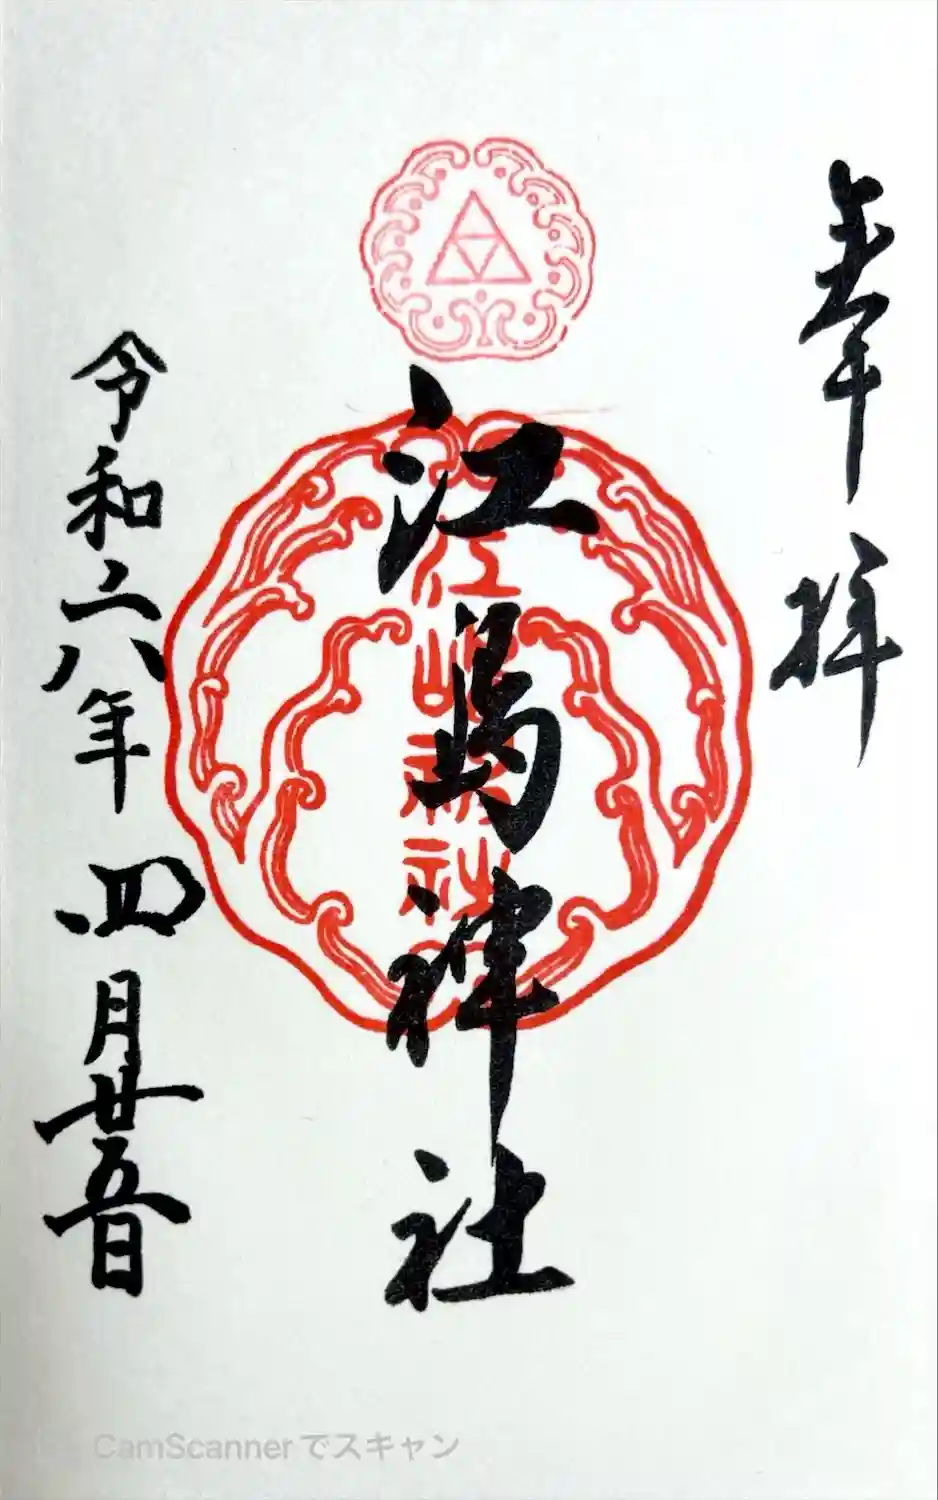 奉拝
江島神社
江島神社
令和六年四月廿五日
CamScannerでスキャン